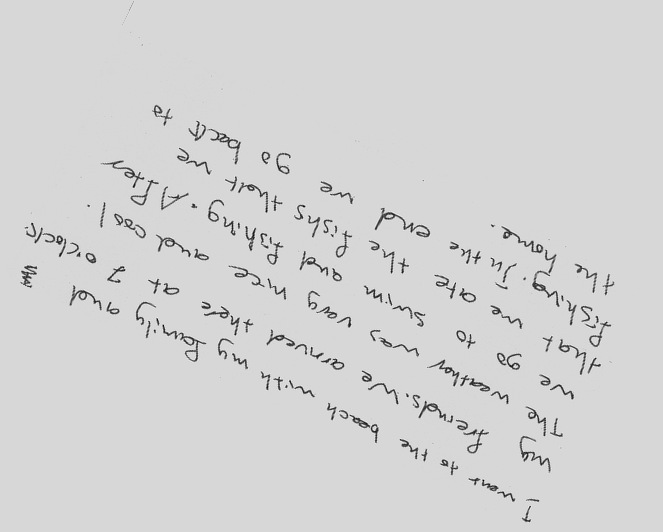 I went to the beach with my family and
my freinds. We arrived there at 7 o'clock
The weather was very nice and cool.
we go to swim and fishing. After
that we ate the fishs that we
fishing. In the end we go back to
the home.